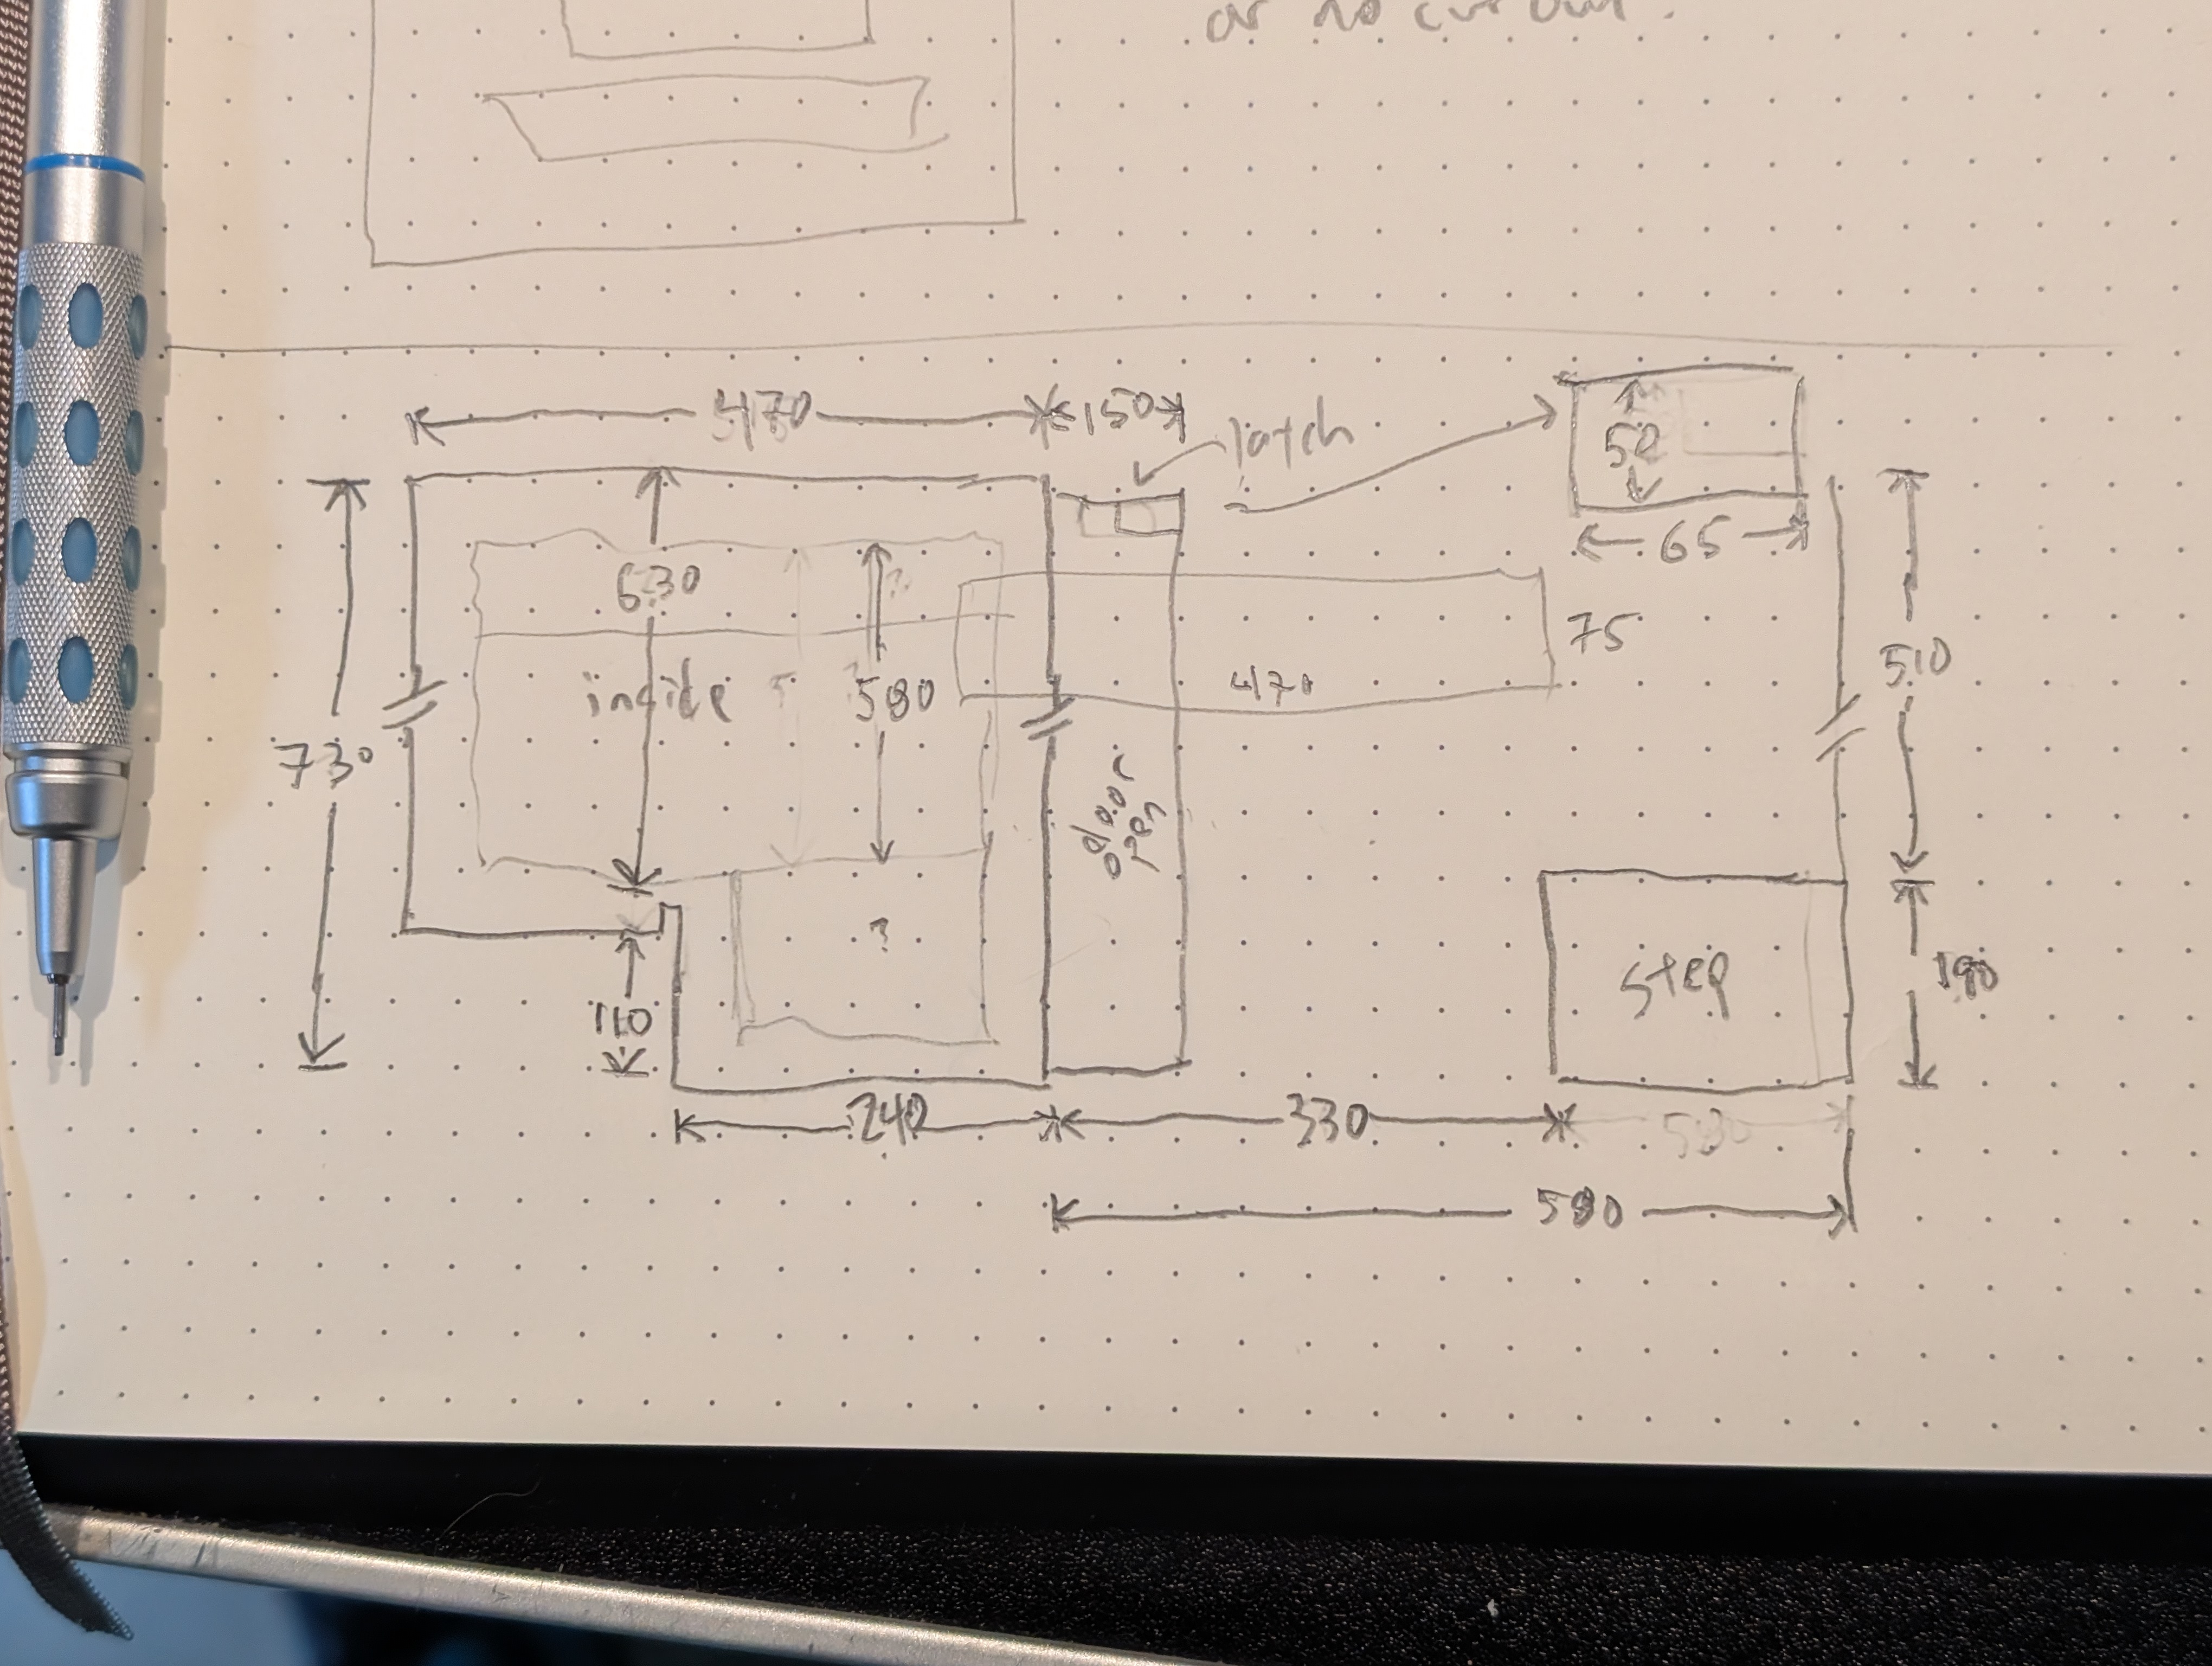 or no cut out.
470
150
latch
50
65
630
75
510
inside
580
470
730
door
open
?
step
190
110
240
330
530
580